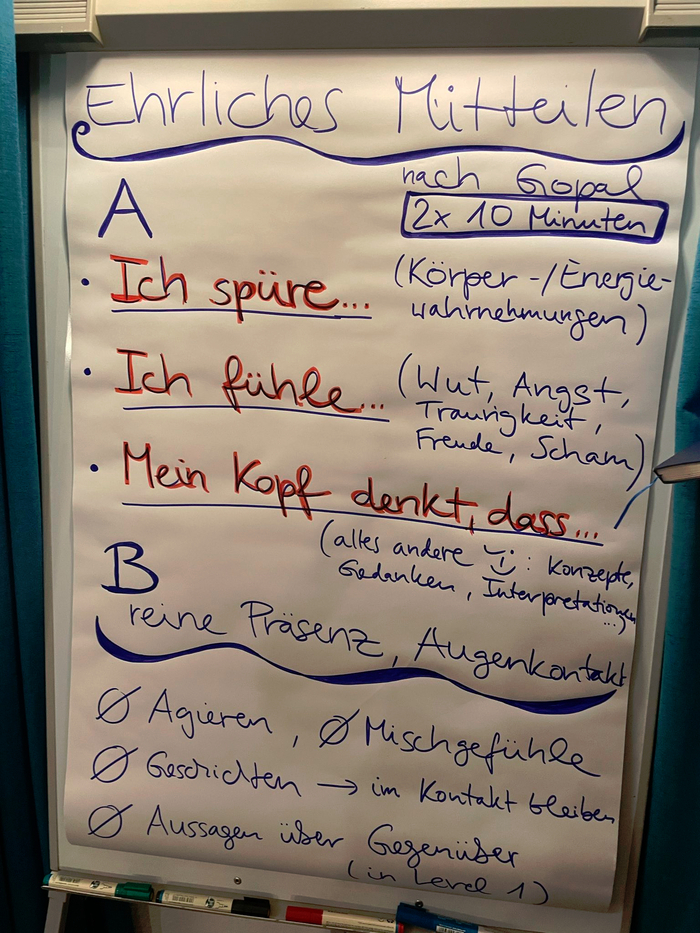 Ehrliches Mitteilen
nach Gopal
A
2x 10 Minuten
• Ich spüre... (Körper-/Energie-
wahrnehmungen)
• Ich fühle... (Wut, Angst,
Traurigkeit,
Freude, Scham)
• Mein Kopf denkt, dass...
(alles andere : Konzepte,
Gedanken, Interpretationen
...)
B
reine Präsenz, Augenkontakt
Ø Agieren, Ø Mischgefühle
Ø Geschichten → im Kontakt bleiben
Ø Aussagen über Gegenüber
(in Level 1)